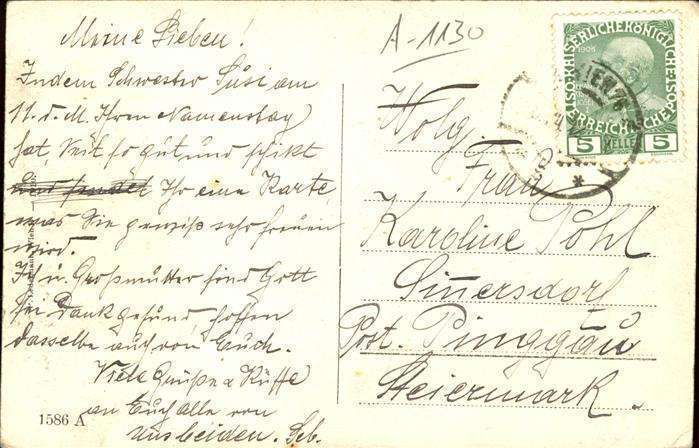 Meine Lieben!
Indem Schwester Susi am
11. d. M. Ihren Namenstag
hat, seit so gut und schikt
und sendet Ihr eine Karte,
was Sie gewiß sehr freuen
wird.
Ich u. Großmutter sind Gott
sei Dank gesund, hoffen
dasselbe auch von Euch.
Viele Grüße u Küsse
an Euch alle von
uns beiden. Seb.
1586 A
A-1130
KAISERLICHE KÖNIGLICHE ÖSTERREICHISCHE POST
1908
5 HELLER 5
WIEN
Wolg.
Frau
Karoline Pöhl
Sinnersdorf
Post. Pinggau
Steiermark.